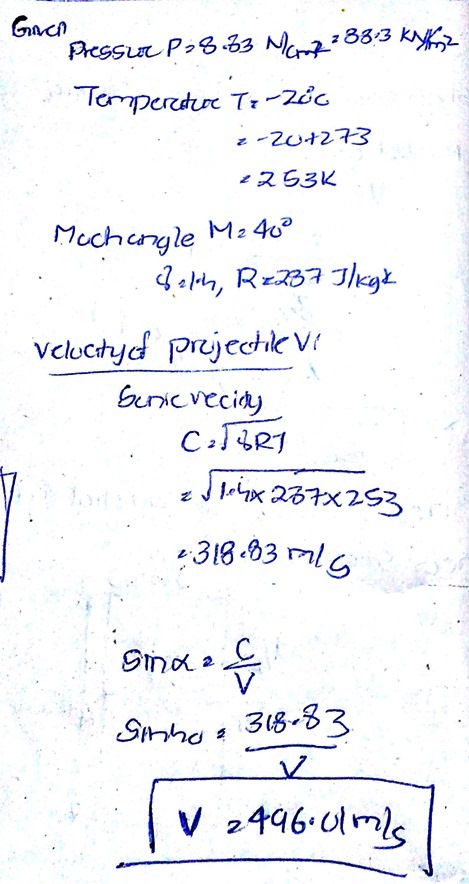 Given
Pressure P = 8.83 N/cm² = 88.3 kN/m²
Temperature T = -20°C
= -20+273
= 253K
Mach angle M = 40°
γ = 1.4, R = 287 J/kgK
Velocity of projectile V:
Sonic velocity
C = √γRT
= √1.4 x 287 x 253
= 318.83 m/s
Sin α = C/V
Sin 40 = 318.83/V
V = 496.01 m/s